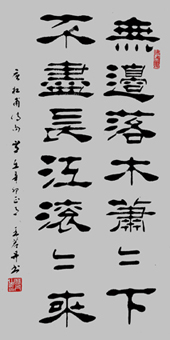 無邊落木蕭〻下
不盡長江滾〻來
唐杜甫詩句 辛卯 書